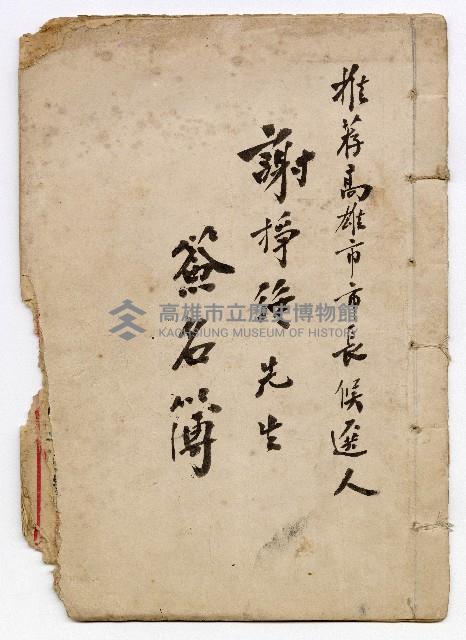 推荐高雄市市長候選人
謝掙強先生
簽名簿
高雄市立歷史博物館
KAOHSIUNG MUSEUM OF HISTORY